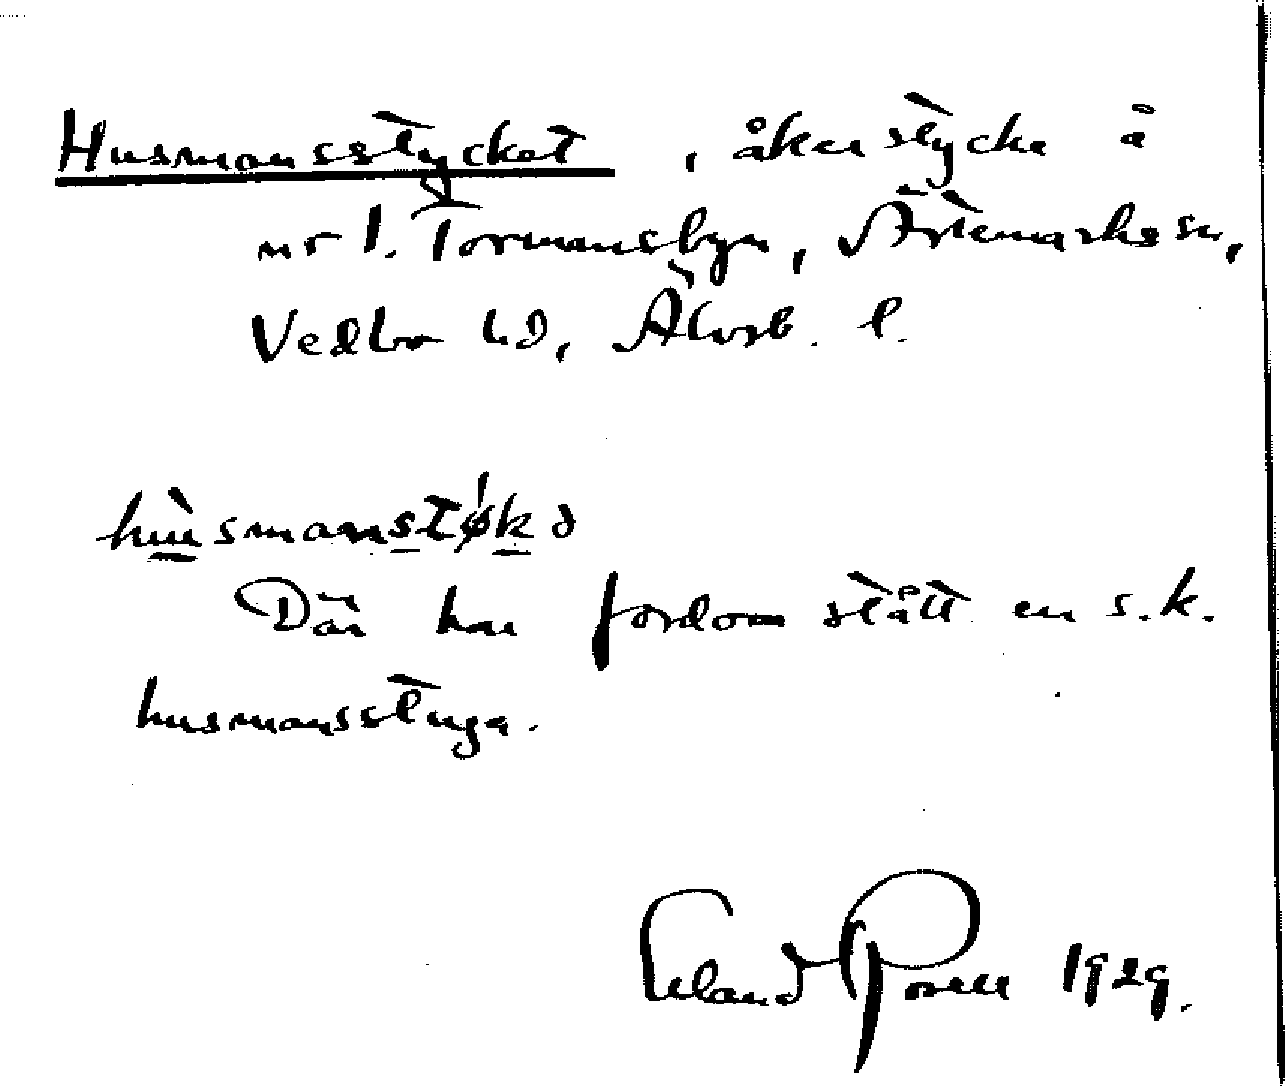 Husmansstycket, åkerstycke å
nr 1. Tormansbyn, Ärtemarks sn,
Vedbo hd, Älvsb. l.
hùsmanstø̍kə
Där har fordom stått en s.k.
husmansstuga.
Erland Rosell 1929.